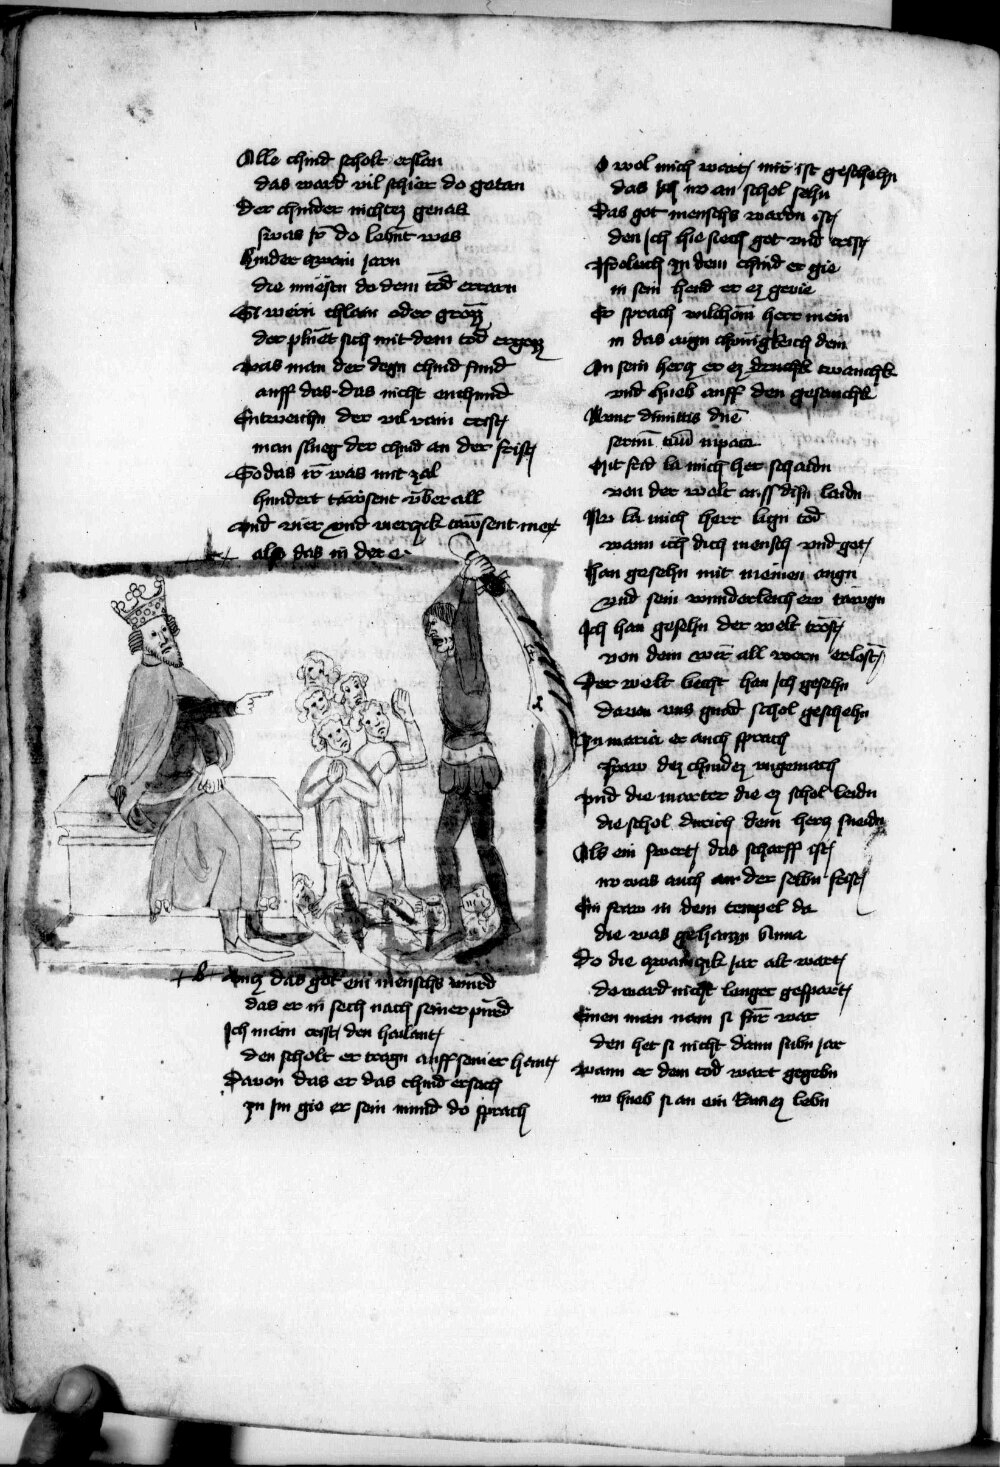 Alle chind scholt erslan
das ward vil schier do getan
Der chinder nichtz genas
swas ir do lebñt was
Hinder zwain jarn
die müestn do dem tod errarn
Si wern chlain oder grozz
der plüet sich mit dem tod ergozz
was man der degn chind fund
auff das das nicht enchund
Entweichn der vil rain crist
man slueg der chind an der frist
So das ir was mit zal
hundert tawsent über all
vnd vier vnd vierczik tawsent mer
als das in der e
b Auch das got ein menschs würd
das er in sech nach seiner pürd
Ich main crist den hailant
den scholt er tragn auff seiner hent
Davon das er das chind ersach
zu im gie er sein mund do sprach
O wol mich wart mir ist geschehn
das ich nv an schol sehn
Das got menschs wardn ist
den ich hie siech got vnd crist
Froleich zu dem chind er gie
in sein hend er ez gevie
Er sprach wilchom herr mein
in das aign chünigkeich dein
An sein hercz er ez druckh twanchk
vnd hueb auff den gesanchk
Nunc dimittis dne
servum tuum in pace
Mit frid la mich her schaidn
von der welt auff disn laidn
Nv la mich herr lign tod
wann ich dich mensch vnd got
Han gesehn mit meinen augn
vnd sein wunderleich erw taugn
Ich han gesehn der welt trost
von dem wir all wern erlost
Der welt liecht han ich gesehn
davon vns gnad schol geschehn
Zu maria er auch sprach
fraw dez chindez vngemach
vnd die marter die ez schol leidn
die schol durich dein hercz sneidn
Als ein swert das scharff ist
nv was auch an der selbn frist
Ein fraw in dem tempel da
die was gehaizzn Anna
Do die zwainczik jar alt wart
do ward nicht lenger gespart
Einen man nam si für war
den het si nicht dann sibn jar
wann er dem tod wart gegebn
nv hueb si an ein rainez lebn